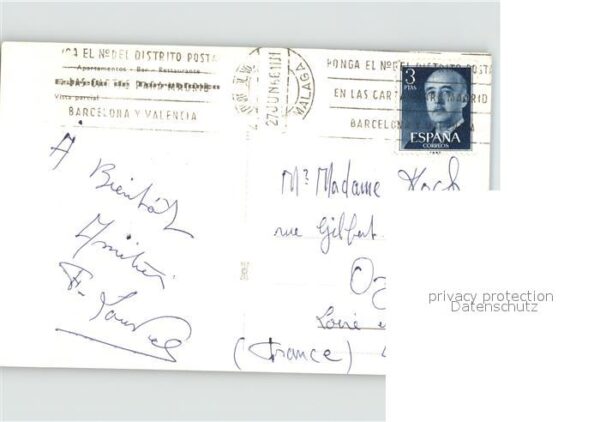 NGA EL Nº DEL DISTRITO POSTA
Apartamentos - Bar - Restaurante
Vista parcial
BARCELONA Y VALENCIA
27 JUN
MALAGA
PONGA EL Nº DEL DISTRITO POSTA
EN LAS CARTAS PARA MADRID
BARCELONA Y VALENCIA
3
PTAS
ESPAÑA
CORREOS
A Bientôt
Amitiés
Mr Madame Koch
rue Gilbert
Loire
(France)
privacy protection
Datenschutz